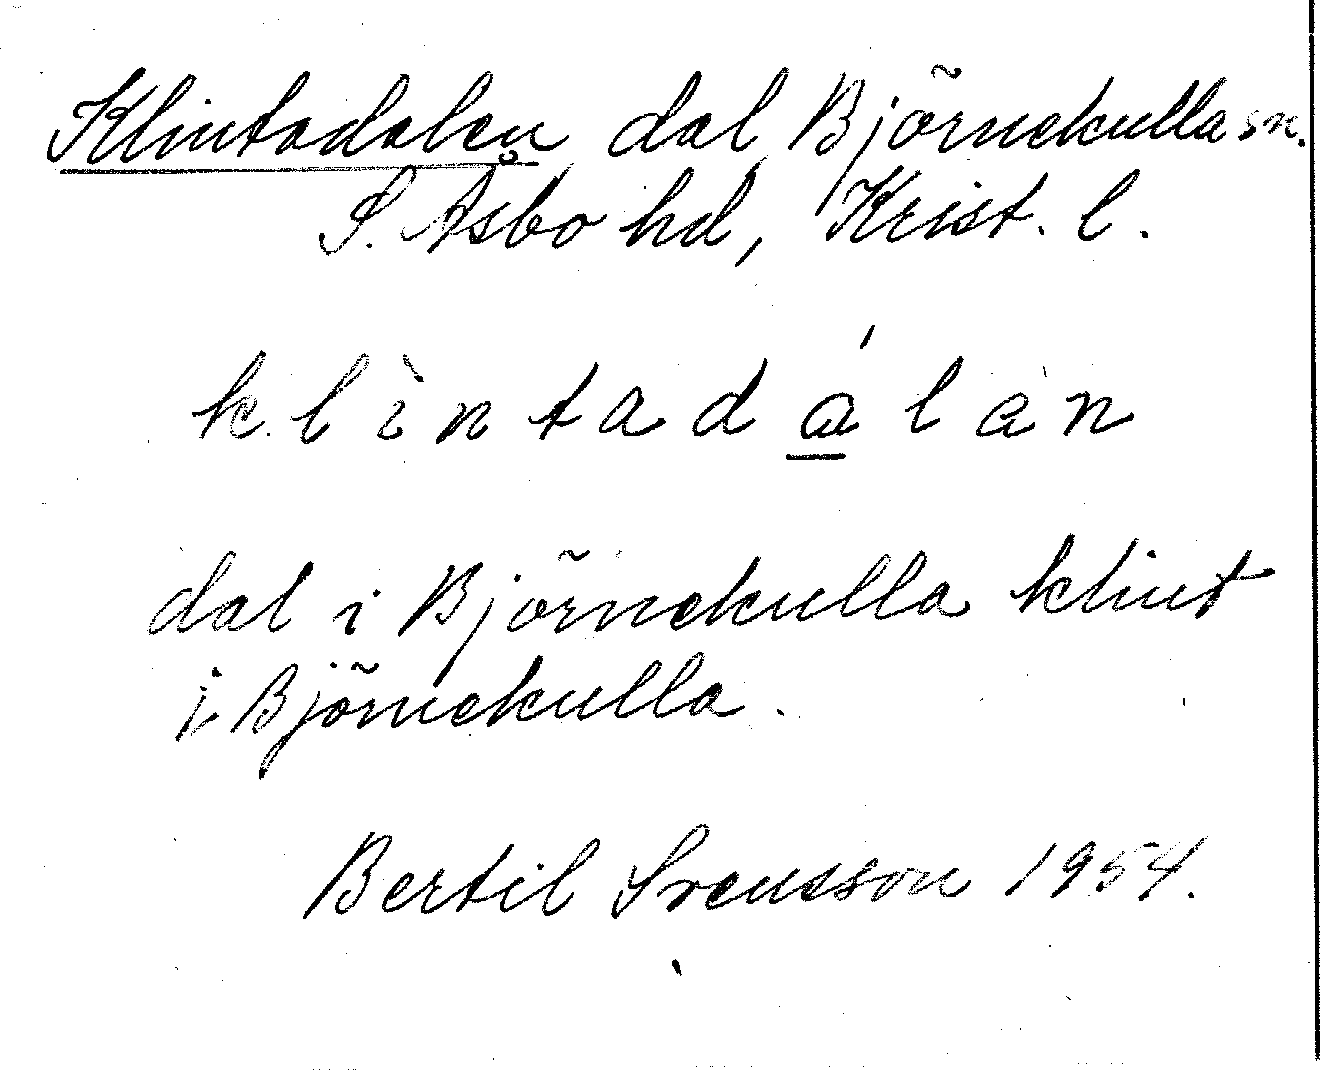 Klintadalen dal Björnekulla sn.
S. Åsbo hd, Krist. l.
klìntadálan
dal i Björnekulla klint
i Björnekulla.
Bertil Svensson 1954.